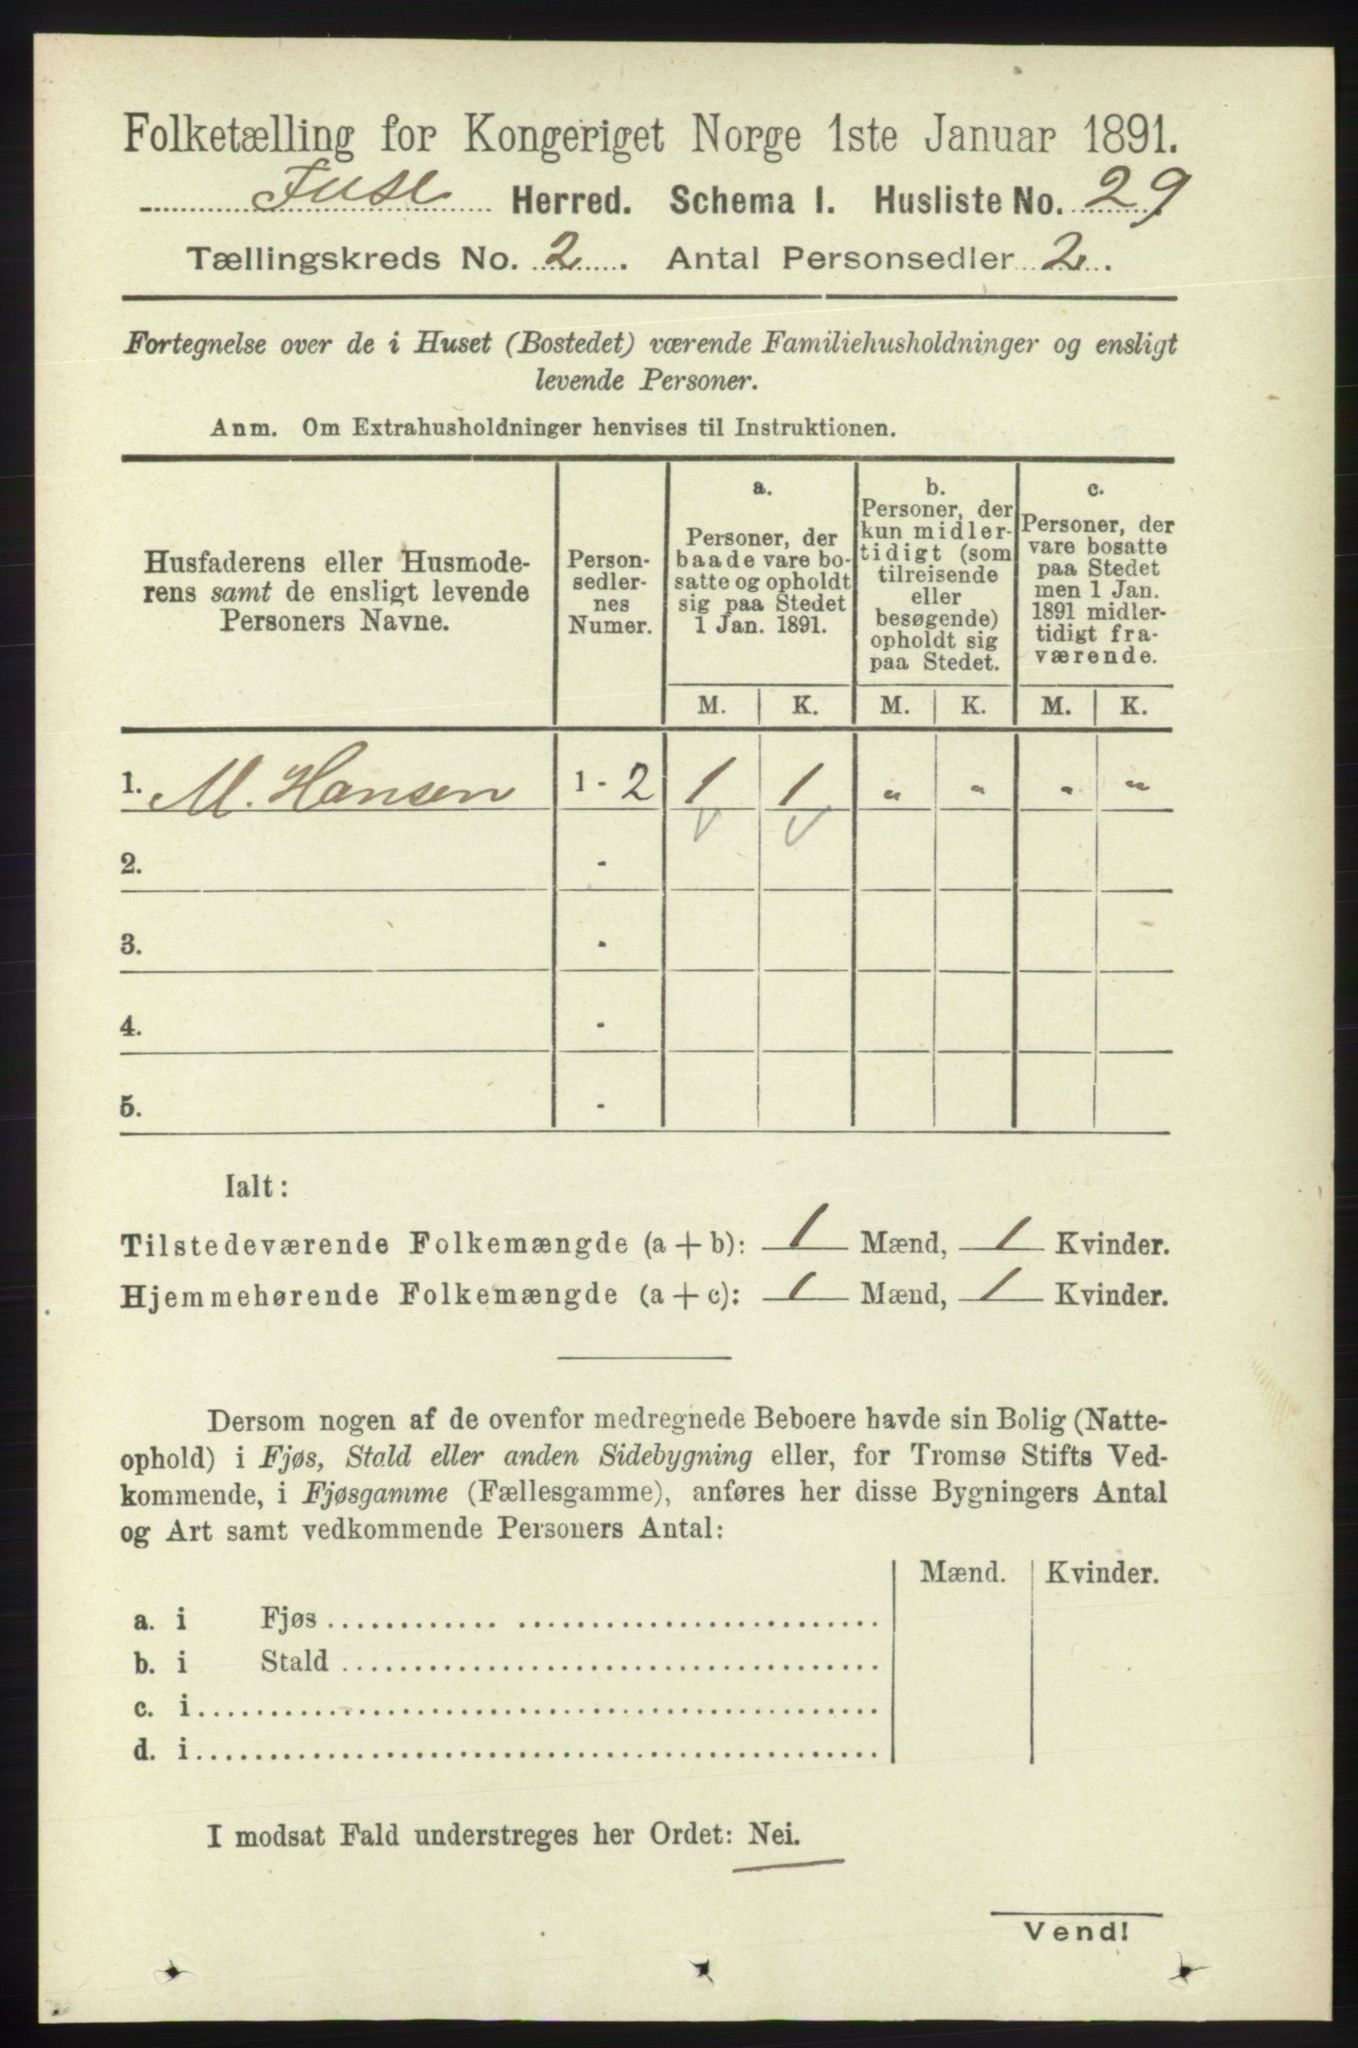 Folketælling for Kongeriget Norge 1ste Januar 1891.
Fuse Herred. Schema I. Husliste No. 29
Tællingskreds No. 2. Antal Personsedler 2.
Fortegnelse over de i Huset (Bostedet) værende Familiehusholdninger og ensligt
levende Personer.
Anm. Om Extrahusholdninger henvises til Instruktionen.
Husfaderens eller Husmode-
rens samt de ensligt levende
Personers Navne.
Person-
sedler-
nes
Numer.
a.
Personer, der
baade vare bo-
satte og opholdt
sig paa Stedet
1 Jan. 1891.
b.
Personer, der
kun midler-
tidigt (som
tilreisende
eller
besøgende)
opholdt sig
paa Stedet.
c.
Personer, der
vare bosatte
paa Stedet
men 1 Jan.
1891 midler-
tidigt fra-
værende.
M. K. M. K. M. K.
1. M. Hansen 1 - 2 1 1 " " " "
2. -
3. -
4. -
5. -
Ialt:
Tilstedeværende Folkemængde (a + b): 1 Mænd, 1 Kvinder.
Hjemmehørende Folkemængde (a + c): 1 Mænd, 1 Kvinder.
Dersom nogen af de ovenfor medregnede Beboere havde sin Bolig (Natte-
ophold) i Fjøs, Stald eller anden Sidebygning eller, for Tromsø Stifts Ved-
kommende, i Fjøsgamme (Fællesgamme), anføres her disse Bygningers Antal
og Art samt vedkommende Personers Antal:
Mænd. Kvinder.
a. i Fjøs
b. i Stald
c. i
d. i
I modsat Fald understreges her Ordet: Nei.
Vend!